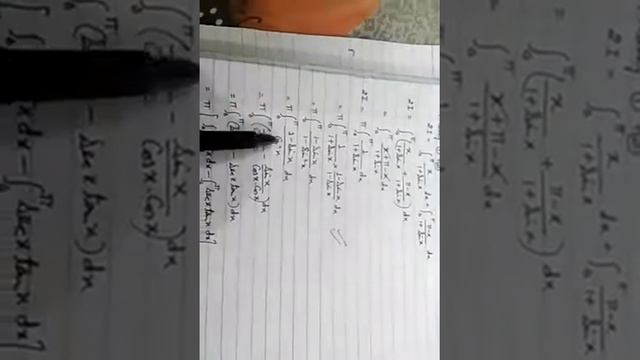 2I = ∫₀^π x/(1+sin x) dx + ∫₀^π (π-x)/(1+sin x) dx
2I = ∫₀^π (x/(1+sin x) + (π-x)/(1+sin x)) dx
= ∫₀^π (x+π-x)/(1+sin x) dx
2I = π ∫₀^π 1/(1+sin x) dx
= π ∫₀^π 1/(1+sin x) (1-sin x)/(1-sin x) dx
= π ∫₀^π (1-sin x)/(1-sin²x) dx
= π ∫₀^π (1-sin x) dx
= π ∫₀^π ( - sin x/(cos x. cos x)) dx
= π ∫₀^π ( - sec x tan x) dx
= π [∫₀^π x dx - ∫₀^π sec x tan x dx]